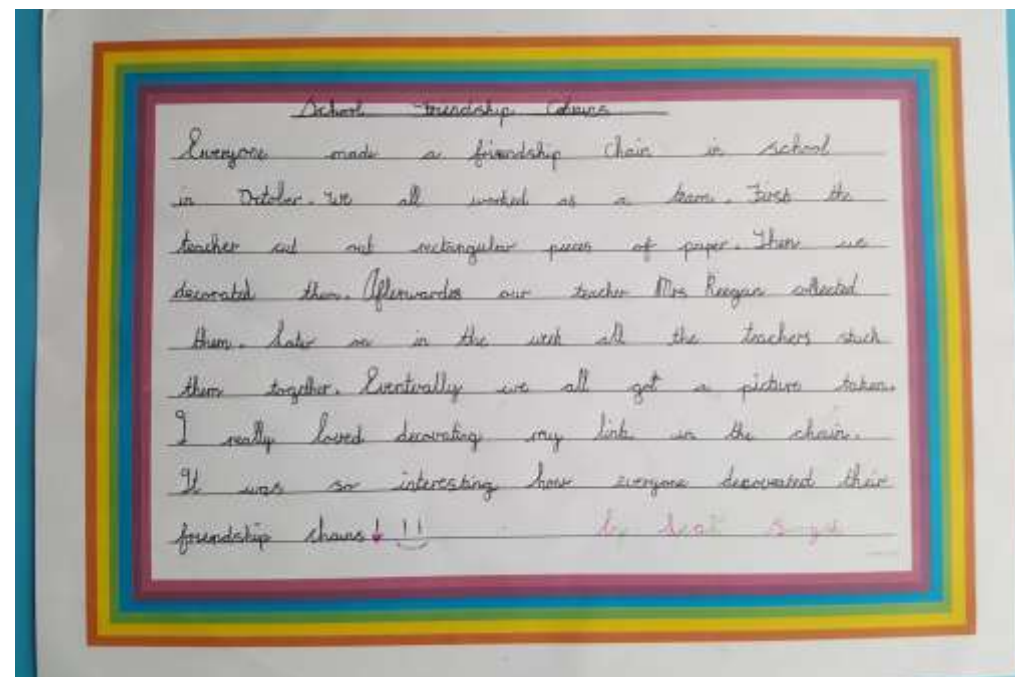 School Friendship Colours
Everyone made a friendship chain in school
in October. We all worked as a team. First the
teacher cut out rectangular pieces of paper. Then we
decorated them. Afterwardes our teacher Mrs Keegan collected
them. Later on in the week all the teachers stuck
them together. Eventually we all got a picture taken.
I really loved decorating my link in the chain.
It was so interesting how everyone decorated their
friendship chains